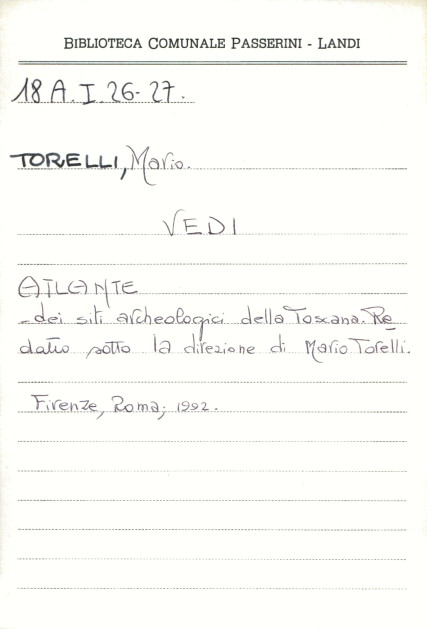 BIBLIOTECA COMUNALE PASSERINI - LANDI
18 A. I. 26-27.
TORELLI, Mario.
VEDI
ATLANTE
-dei siti archeologici della Toscana. Re
datto sotto la direzione di Mario Torelli.
Firenze, Roma; 1992.